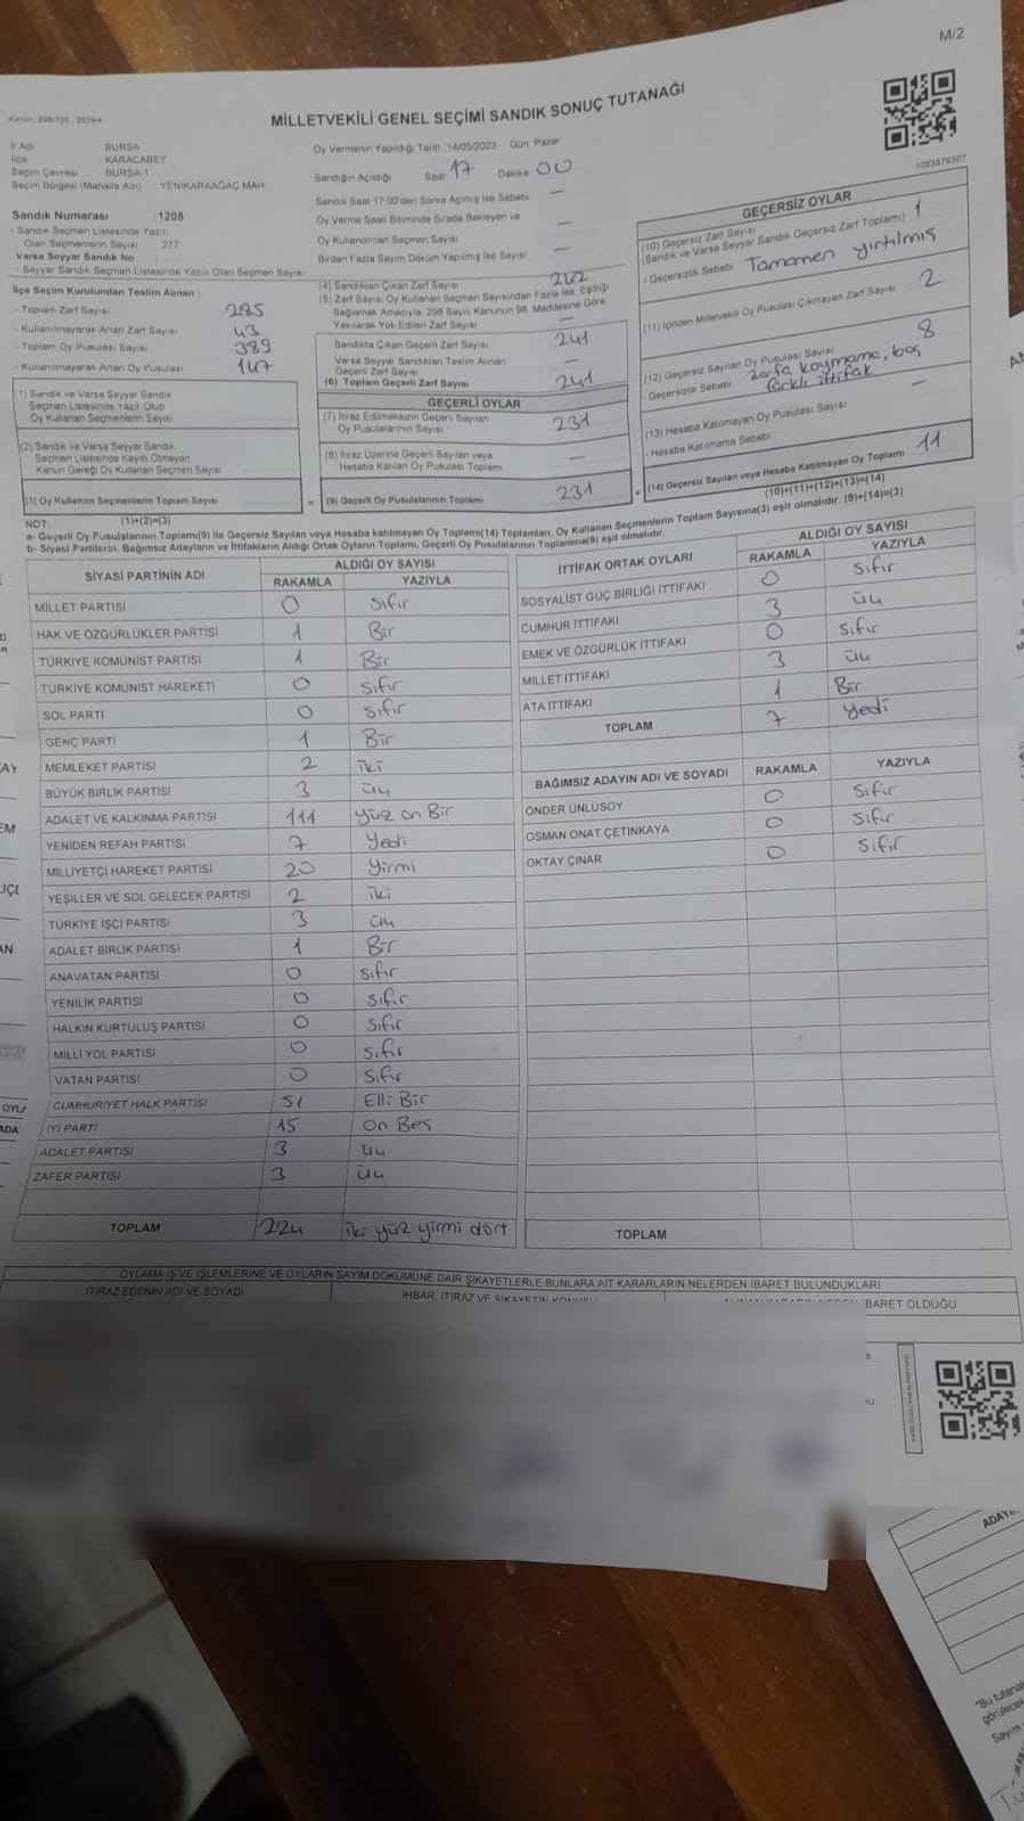 M/2
MİLLETVEKİLİ GENEL SEÇİMİ SANDIK SONUÇ TUTANAĞI
İl Adı BURSA
İlçe KARACABEY
Seçim Çevresi BURSA-1
Seçim Bölgesi (Mahalle Adı) YENİKARAAĞAÇ MAH.
Sandık Numarası : 1208
- Sandık Seçmen Listesinde Yazılı
Olan Seçmenlerin Sayısı : 277
Varsa Seyyar Sandık No
- Seyyar Sandık Seçmen Listesinde Yazılı Olan Seçmen Sayısı
İlçe Seçim Kurulundan Teslim Alınan :
- Toplam Zarf Sayısı 285
- Kullanılmayarak Artan Zarf Sayısı 43
- Toplam Oy Pusulası Sayısı 389
- Kullanılmayarak Artan Oy Pusulası 147
(1) Sandık ve Varsa Seyyar Sandık
Seçmen Listesinde Yazılı Olup
Oy Kullanan Seçmenlerin Sayısı
(2) Sandık ve Varsa Seyyar Sandık
Seçmen Listesinde Kayıtlı Olmayan
Kanun Gereği Oy Kullanan Seçmen Sayısı
(3) Oy Kullanan Seçmenlerin Toplam Sayısı
(1)+(2)=(3)
Oy Vermenin Yapıldığı Tarih :14/05/2023 Gün: Pazar
Sandığın Açıldığı Saat 17 Dakika 00
Sandık Saat 17.00'den Sonra Açılmış İse Sebebi —
Oy Verme Saati Bitiminde Sırada Bekleyen ve
Oy Kullandırılan Seçmen Sayısı —
Birden Fazla Sayım Döküm Yapılmış İse Sayısı —
(4) Sandıktan Çıkan Zarf Sayısı 242
(5) Zarf Sayısı Oy Kullanan Seçmen Sayısından Fazla İse, Eşitliği
Sağlamak Amacıyla, 298 Sayılı Kanunun 98. Maddesine Göre
Yakılarak Yok Edilen Zarf Sayısı —
Sandıkta Çıkan Geçerli Zarf Sayısı 241
Varsa Seyyar Sandıktan Teslim Alınan
Geçerli Zarf Sayısı —
(6) Toplam Geçerli Zarf Sayısı 241
GEÇERLİ OYLAR
(7) İtiraz Edilmeksizin Geçerli Sayılan
Oy Pusulalarının Sayısı 231
(8) İtiraz Üzerine Geçerli Sayılan veya
Hesaba Katılan Oy Pusulası Toplamı —
= (9) Geçerli Oy Pusulalarının Toplamı 231
GEÇERSİZ OYLAR
(10) Geçersiz Zarf Sayısı
(Sandık ve Varsa Seyyar Sandık Geçersiz Zarf Toplamı) 1
- Geçersizlik Sebebi Tamamen yırtılmış
(11) İçinden Milletvekili Oy Pusulası Çıkmayan Zarf Sayısı 2
(12) Geçersiz Sayılan Oy Pusulası Sayısı 8
- Geçersizlik Sebebi zarfa koymama, boş
farklı ittifak
(13) Hesaba Katılmayan Oy Pusulası Sayısı —
- Hesaba Katılmama Sebebi
+ (14) Geçersiz Sayılan veya Hesaba Katılmayan Oy Toplamı 11
(10)+(11)+(12)+(13)=(14)
NOT:
a- Geçerli Oy Pusulalarının Toplamı(9) ile Geçersiz Sayılan veya Hesaba katılmayan Oy Toplamı(14) Toplamları, Oy Kullanan Seçmenlerin Toplam Sayısına(3) eşit olmalıdır. (9)+(14)=(3)
b- Siyasi Partilerin, Bağımsız Adayların ve İttifakların Aldığı Ortak Oyların Toplamı, Geçerli Oy Pusulalarının Toplamına(9) eşit olmalıdır.
SİYASİ PARTİNİN ADI ALDIĞI OY SAYISI
RAKAMLA YAZIYLA
MİLLET PARTİSİ 0 Sıfır
HAK VE ÖZGÜRLÜKLER PARTİSİ 1 Bir
TÜRKİYE KOMÜNİST PARTİSİ 1 Bir
TÜRKİYE KOMÜNİST HAREKETİ 0 Sıfır
SOL PARTİ 0 Sıfır
GENÇ PARTİ 1 Bir
MEMLEKET PARTİSİ 2 iki
BÜYÜK BİRLİK PARTİSİ 3 üç
ADALET VE KALKINMA PARTİSİ 111 yüz on Bir
YENİDEN REFAH PARTİSİ 7 Yedi
MİLLİYETÇİ HAREKET PARTİSİ 20 Yirmi
YEŞİLLER VE SOL GELECEK PARTİSİ 2 iki
TÜRKİYE İŞÇİ PARTİSİ 3 üç
ADALET BİRLİK PARTİSİ 1 Bir
ANAVATAN PARTİSİ 0 sıfır
YENİLİK PARTİSİ 0 sıfır
HALKIN KURTULUŞ PARTİSİ 0 sıfır
MİLLİ YOL PARTİSİ 0 sıfır
VATAN PARTİSİ 0 sıfır
CUMHURİYET HALK PARTİSİ 51 Elli Bir
İYİ PARTİ 15 on Beş
ADALET PARTİSİ 3 üç
ZAFER PARTİSİ 3 üç
TOPLAM 224 iki yüz yirmi dört
İTTİFAK ORTAK OYLARI ALDIĞI OY SAYISI
RAKAMLA YAZIYLA
SOSYALİST GÜÇ BİRLİĞİ İTTİFAKI 0 sıfır
CUMHUR İTTİFAKI 3 üç
EMEK VE ÖZGÜRLÜK İTTİFAKI 0 sıfır
MİLLET İTTİFAKI 3 üç
ATA İTTİFAKI 1 Bir
TOPLAM 7 Yedi
BAĞIMSIZ ADAYIN ADI VE SOYADI RAKAMLA YAZIYLA
ÖNDER ÜNLÜSOY 0 Sıfır
OSMAN ONAT ÇETİNKAYA 0 Sıfır
OKTAY ÇINAR 0 Sıfır
TOPLAM
OYLAMA İŞ VE İŞLEMLERİNE VE OYLARIN SAYIM DÖKÜMÜNE DAİR ŞİKAYETLERLE BUNLARA AİT KARARLARIN NELERDEN İBARET BULUNDUKLARI
İTİRAZ EDENİN ADI VE SOYADI
İHBAR, İTİRAZ VE ŞİKAYETİN KONUSU
İBARET OLDUĞU